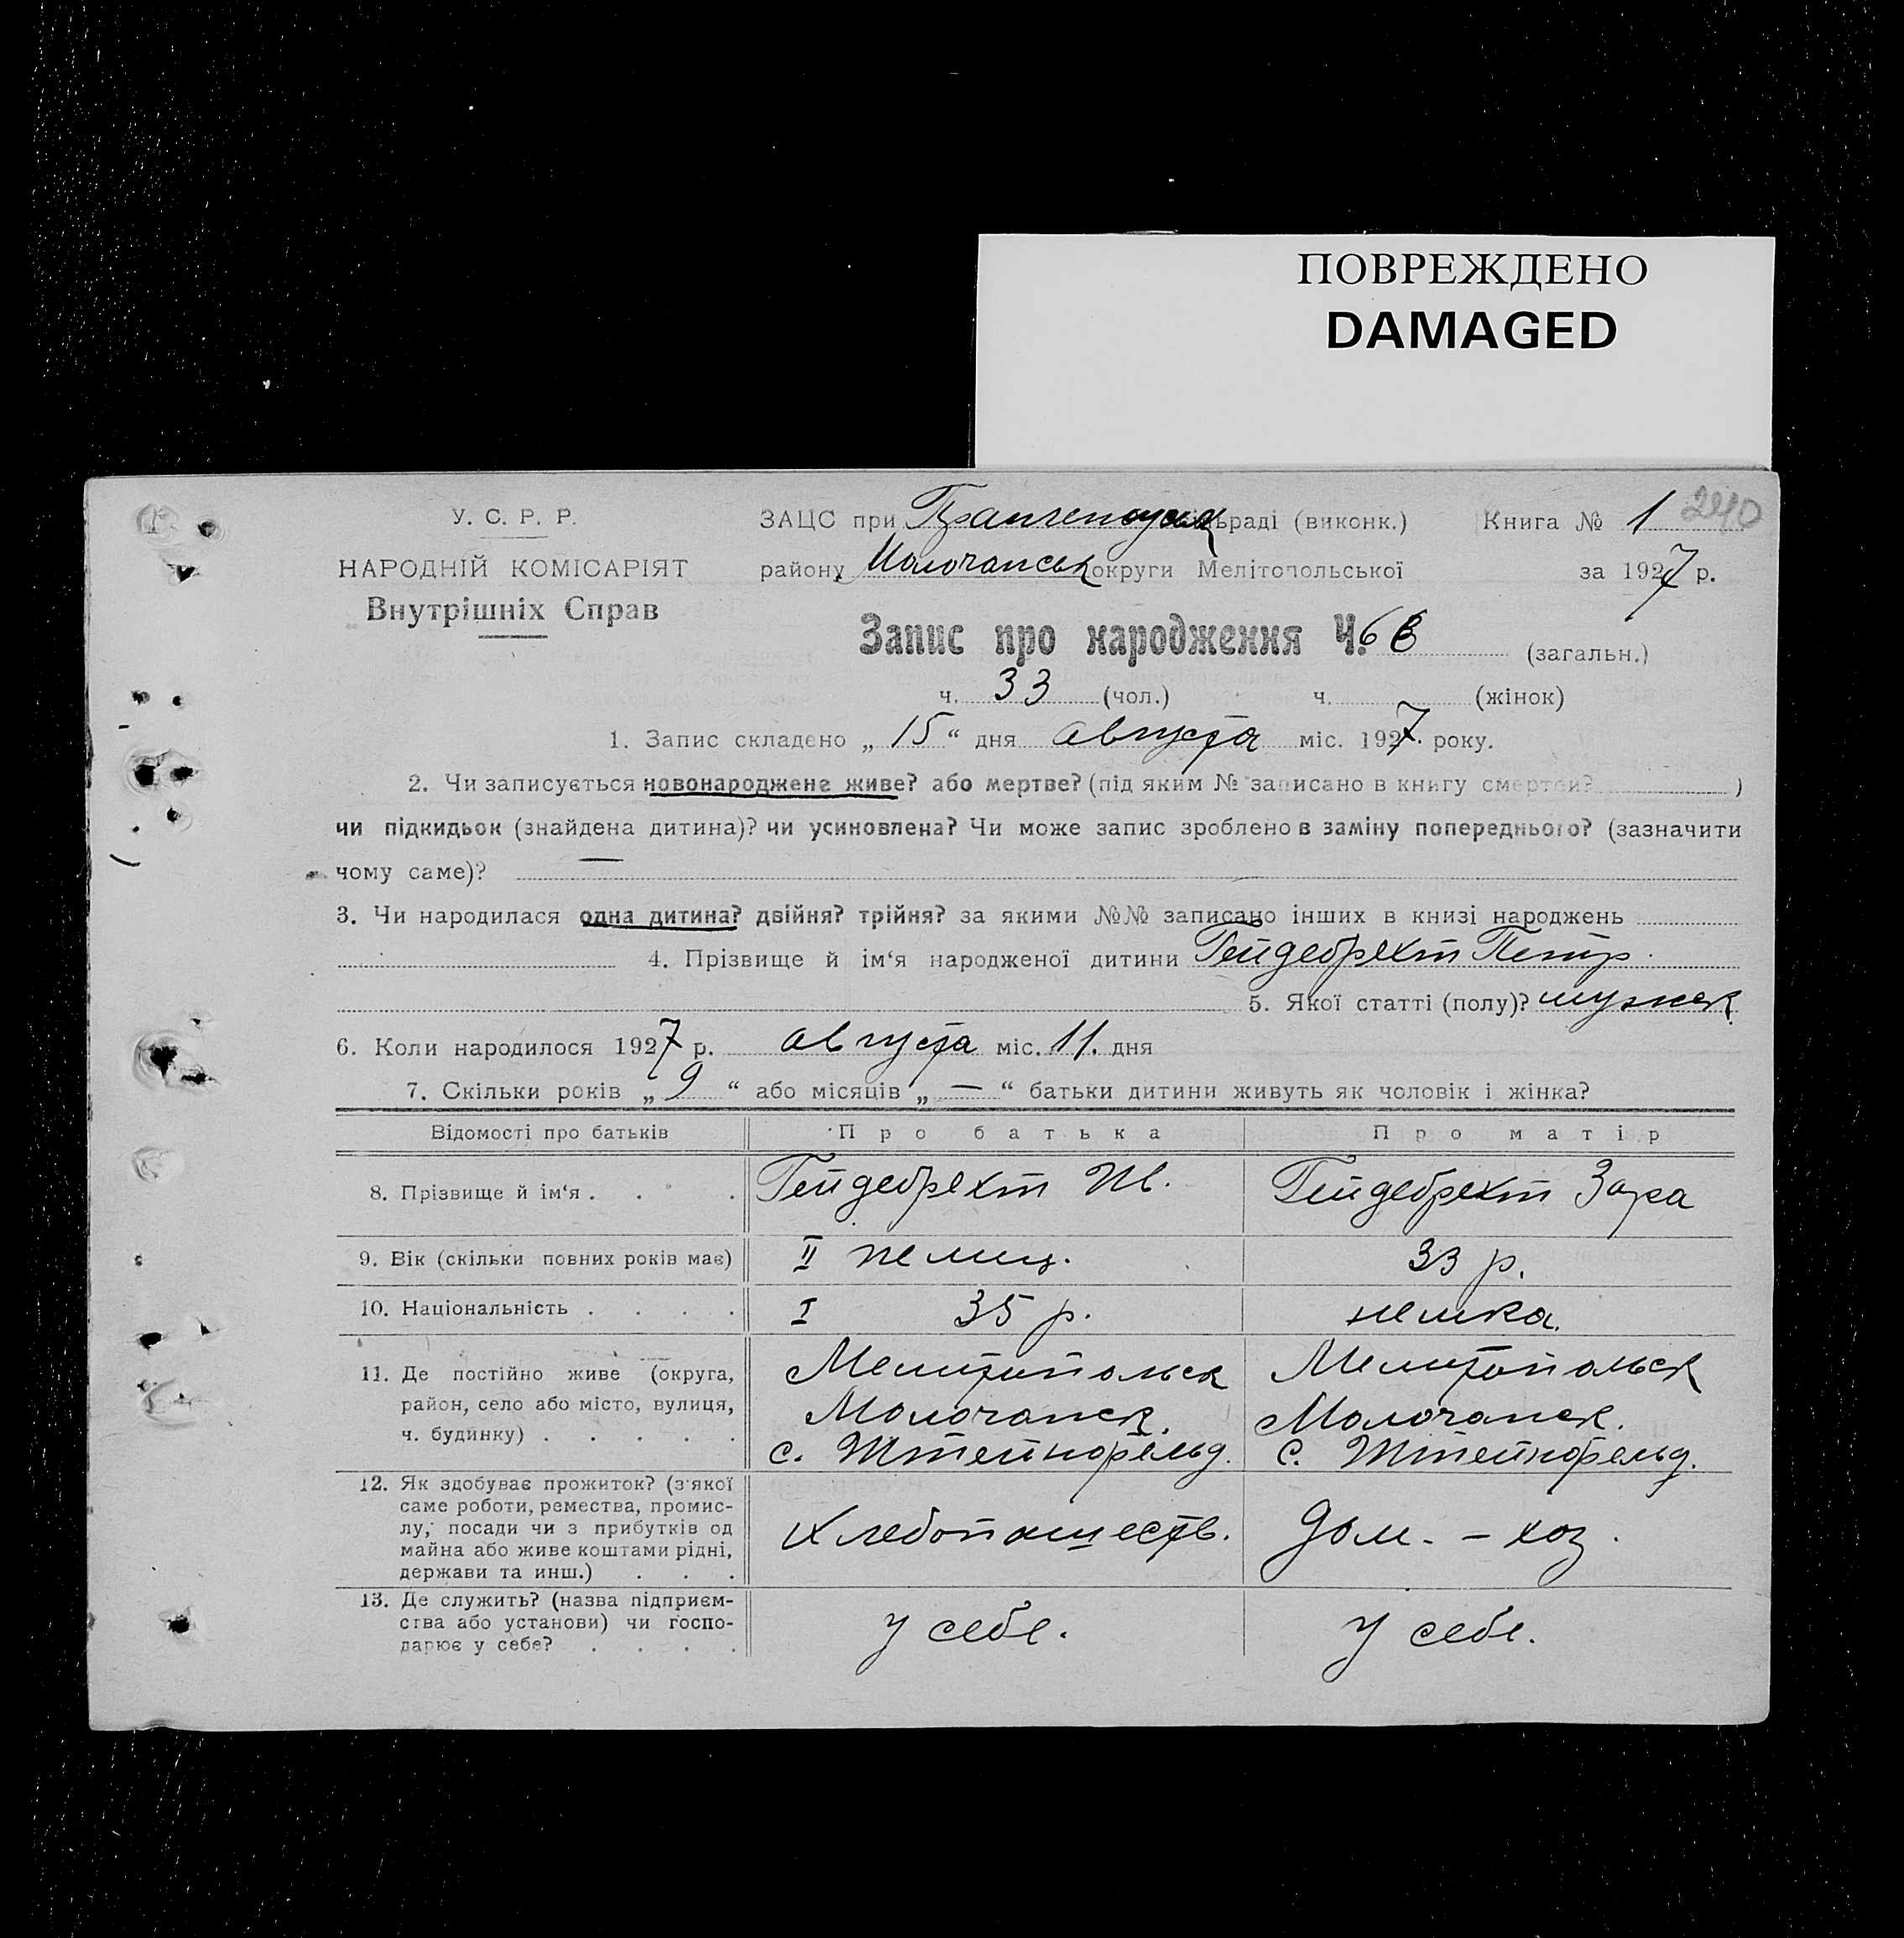 ПОВРЕЖДЕНО
DAMAGED
У. С. Р. Р.
НАРОДНІЙ КОМІСАРІЯТ
Внутрішніх Справ
ЗАЦС при раді (виконк.)
району Молочанськ округи Мелітопольської
Книга № 1 240
за 1927 р.
Запис про народження Ч. (загальн.)
ч. 33 (чол.) ч. (жінок)
1. Запис складено „ 15 “ дня августа міс. 1927 року.
2. Чи записується новонароджене живе? або мертве? (під яким № записано в книгу смертей? )
чи підкидьок (знайдена дитина)? чи усиновлена? Чи може запис зроблено в заміну попереднього? (зазначити
чому саме)? —
3. Чи народилася одна дитина? двійня? трійня? за якими №№ записано інших в книзі народжень
4. Прізвище й ім‘я народженої дитини Гейдебрехт Петр.
5. Якої статті (полу)? мужск
6. Коли народилося 1927 р. августа міс. 11. дня
7. Скільки років „ 9 “ або місяців „ — “ батьки дитини живуть як чоловік і жінка?
Відомості про батьків Про батька Про матір
8. Прізвище й ім‘я . . . Гейдебрехт Ив. Гейдебрехт Зара
9. Вік (скільки повних років має) II немец. 33 р.
10. Національність . . . . I 35 р. немка.
11. Де постійно живе (округа,
район, село або місто, вулиця,
ч. будинку) . . . . .
Мелитопольск
Молочанск.
с. Штейнфельд.
Мелитопольск
Молочанск.
с. Штейнфельд.
12. Як здобуває прожиток? (з‘якої
саме роботи, ремества, промис-
лу, посади чи з прибутків од
майна або живе коштами рідні,
держави та инш.) . . .
Хлебопашеств. Дом. - хоз.
13. Де служить? (назва підприєм-
ства або установи) чи госпо-
дарює у себе? . . . .
у себе. у себе.